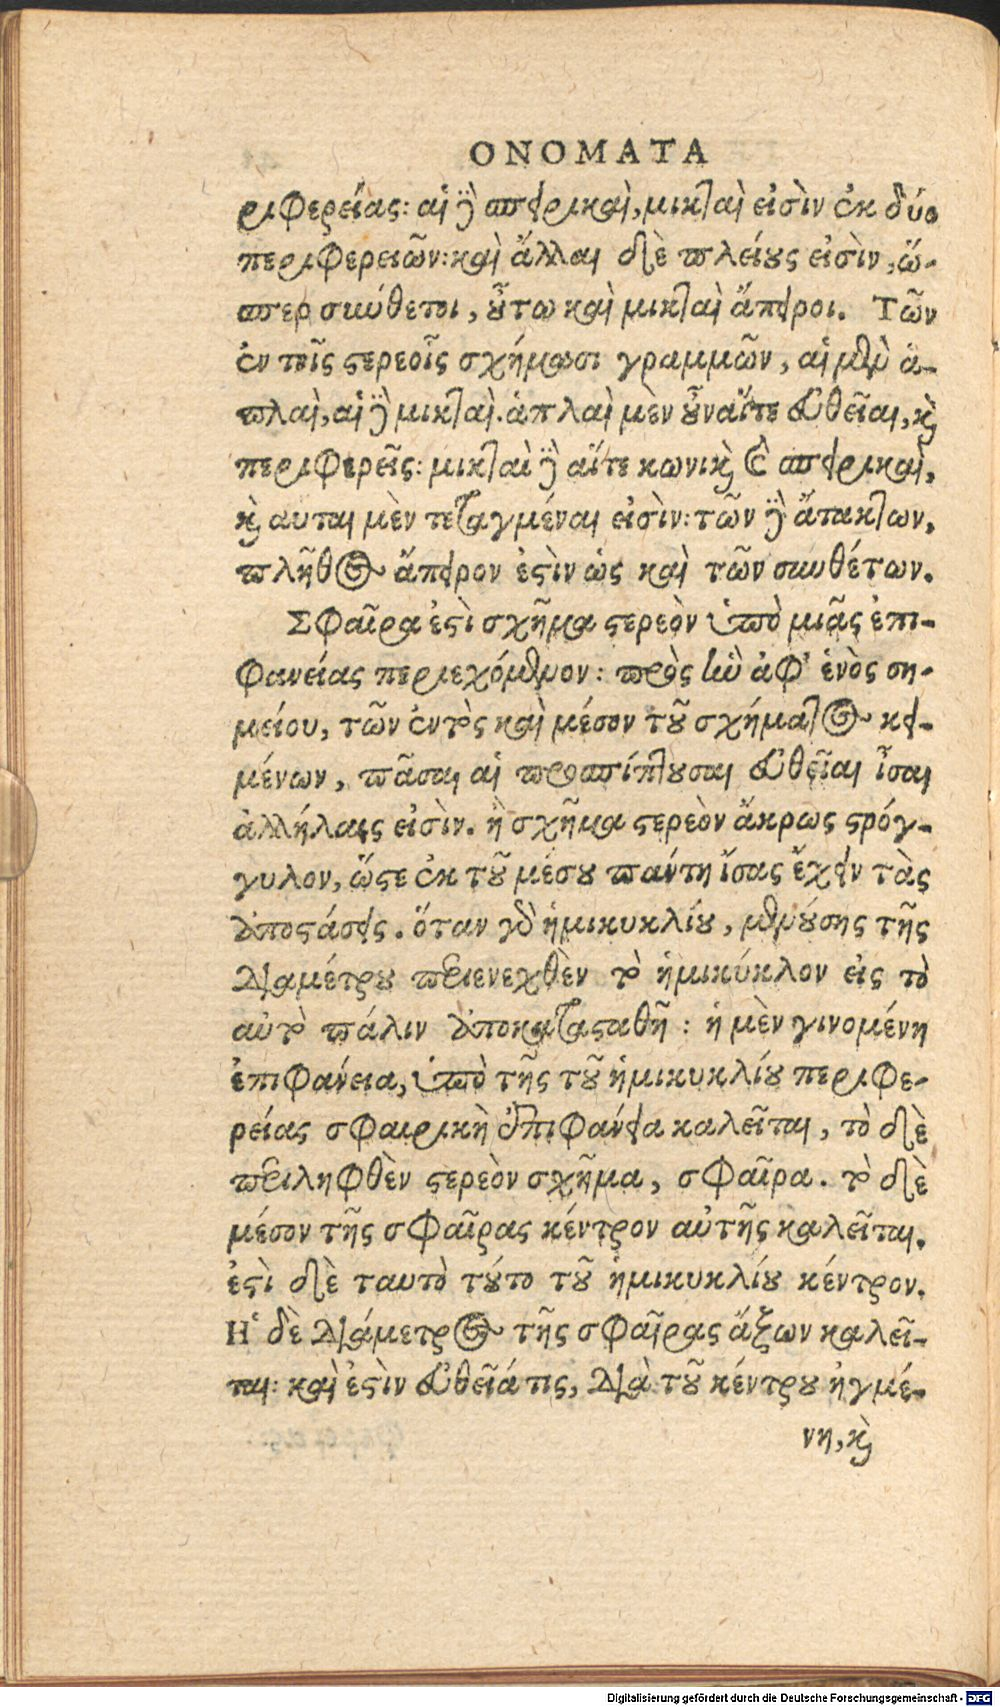 ΟΝΟΜΑΤΑ
ριφερείας: αἱ δὲ σπειρικαὶ, μικταὶ εἰσὶν ἐκ δύο
περιφερειῶν: καὶ ἄλλαι δὲ πλείους εἰσὶν, ὥ-
σπερ σύνθετοι, οὕτω καὶ μικταὶ ἄπειροι. Τῶν
ἐν τοῖς στερεοῖς σχήμασι γραμμῶν, αἱ μὲν ἁ-
πλαὶ, αἱ δὲ μικταὶ. ἁπλαὶ μὲν οὖν αἵτε εὐθεῖαι, καὶ
περιφερεῖς: μικταὶ δὲ αἵτε κωνικαὶ καὶ σπειρικαὶ,
καὶ αυται μὲν τεταγμέναι εἰσὶν: τῶν δὲ ἄτακτων,
πλῆθος ἄπειρον ἐστὶν ὡς καὶ τῶν συνθέτων.
Σφαῖρα ἐστὶ σχῆμα στερεὸν ὑπὸ μιᾶς ἐπι-
φανείας περιεχόμενον: πρὸς ἣν ἀφ' ἑνὸς ση-
μείου, τῶν ἐντὸς καὶ μέσον τοῦ σχήματος κει-
μένων, πᾶσαι αἱ προσπίπτουσαι εὐθεῖαι ἶσαι
ἀλλήλαις εἰσὶν. ἢ σχῆμα στερεὸν ἄκρως στρόγ-
γυλον, ὥστε ἐκ τοῦ μέσου πάντη ἴσας ἔχειν τὰς
ἀποστάσεις. ὅταν γὰρ ἡμικυκλίου, μενούσης τῆς
διαμέτρου περιενεχθὲν τὸ ἡμικύκλον εἰς τὸ
αὐτὸ πάλιν ἀποκατασταθῇ: ἡ μὲν γινομένη
ἐπιφάνεια, ὑπὸ τῆς τοῦ ἡμικυκλίου περιφε-
ρείας σφαιρικὴ ἐπιφάνεια καλεῖται, τὸ δὲ
περιληφθὲν στερεὸν σχῆμα, σφαῖρα. τὸ δὲ
μέσον τῆς σφαῖρας κέντρον αὐτῆς καλεῖται.
ἐστὶ δὲ ταυτὸ τούτο τοῦ ἡμικυκλίου κέντρον.
Ἡ δὲ διάμετρος τῆς σφαῖρας ἄξων καλεῖ-
ται: καὶ ἐστὶν εὐθεῖά τις, διὰ τοῦ κέντρου ἠγμέ-
νη, καὶ
Digitalisierung gefördert durch die Deutsche Forschungsgemeinschaft - DFG